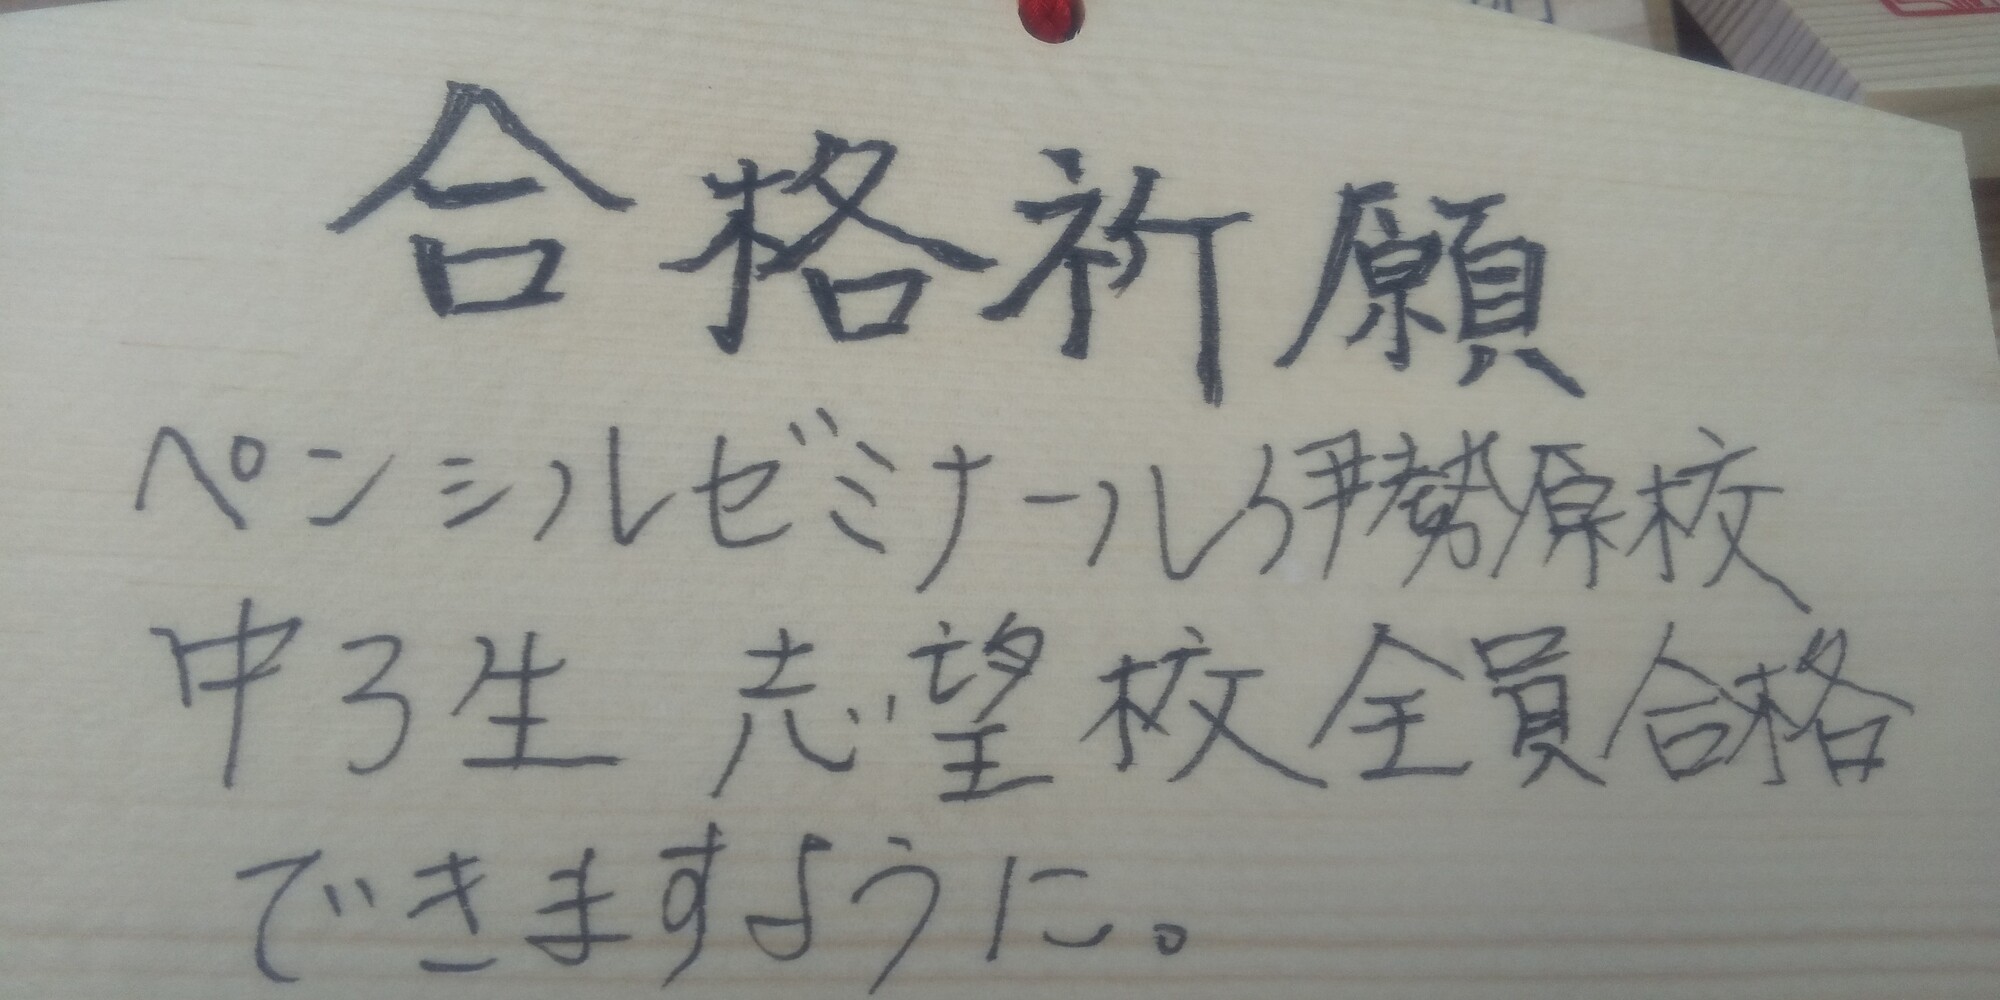 合格祈願
ペンシルゼミナール伊勢原校
中3生 志望校全員合格
できますように。